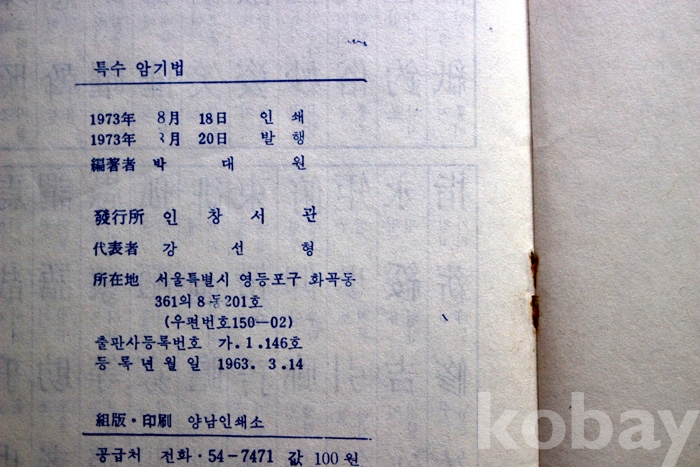 특수 암기법
1973年 8月 18日 인 쇄
1973年 月 20日 발 행
編著者 박 대 원
發行所 인 창 서 관
代表者 강 선 형
所在地 서울특별시 영등포구 화곡동
361의 8 동 201호
(우편번호150—02)
출판사등록번호 가. 1. 146호
등 록 년 월 일 1963. 3. 14
組版・印刷 양남인쇄소
공급처 전화・54-7471 값 100원
kobay